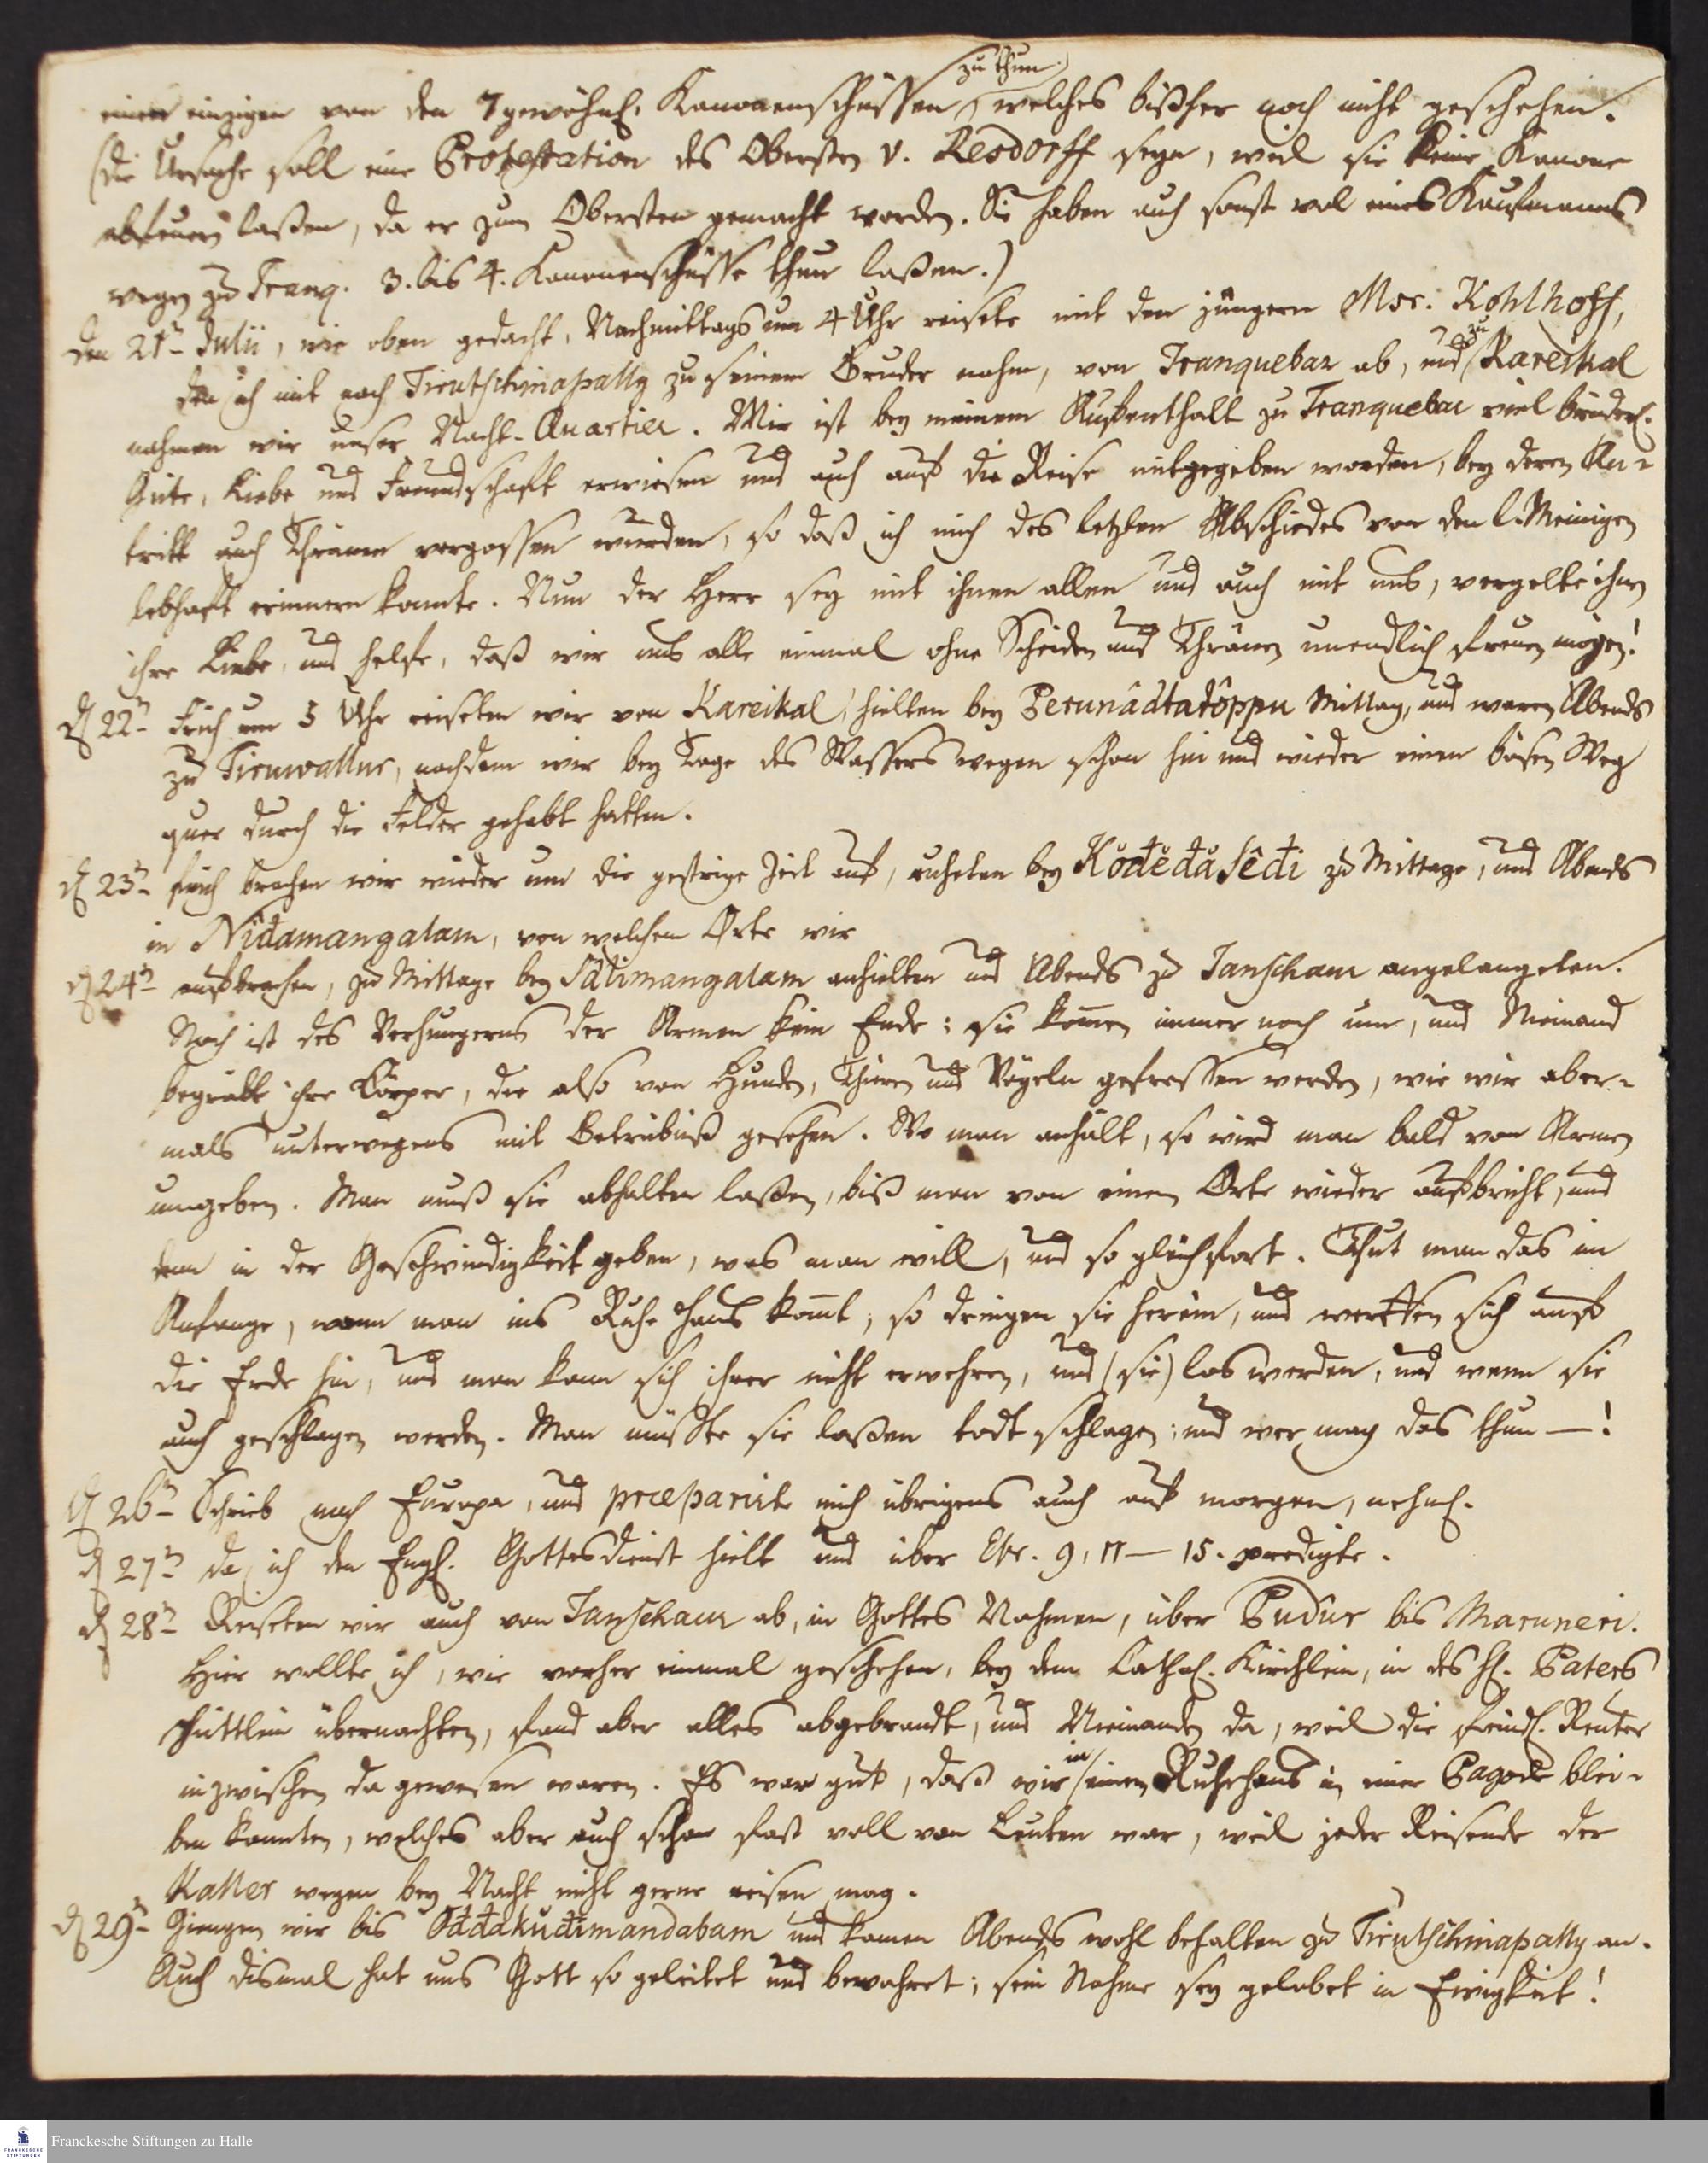 zu thun
einen einzigen von den 7 gewöhnl. Kanonenschüssen, welches bißher noch nicht geschehen.
(Die Ursache soll eine Protestation des Obersten v. Resdorff seyn, weil sie keine Kanone
abfeuern laßen, da er zum Obersten gemacht worden. Sie haben auch sonst wol eines Kaufmanns
wegen zu Tranq. 3. bis 4. Kanonenschüsse thun laßen.)
Den 21t Julii, wie oben gedacht, Nachmittags um 4 Uhr reisete mit den jüngern Msr. Kohlhoff,
den ich mit nach Tirutschinapally zu seinem Bruder nahm, von Tranquebar ab, und zu Kareikal
nahmen wir unser Nacht-Quartier. Mir ist bey meinem Auffenthalt zu Tranquebar viel brüderl.
Güte, Liebe und Freundschaft erwiesen und auch auf die Reise mitgegeben worden, bey deren An-
tritt auch Thränen vergossen wurden, so daß ich mich des letzten Abschiedes von den l. Meinigen
lebhaft erinnern konnte. Nun der Herr sey mit ihnen allen und auch mit uns, vergelte ihnen
ihre Liebe, und helfe, daß wir uns alle einmal ohne Scheiden und Thränen unendlich freuen mögen!
d 22n Früh um 5 Uhr reiseten wir von Kareikal, hielten bey Perunâdtatôppu Mittag, und waren Abends
zu Tiruwallur, nachdem wir bey Tage des Wassers wegen schon hin und wieder einen bösen Weg
quer durch die Felder gehabt hatten.
d 23n früh brachen wir wieder um die gestrige Zeit auf, ruheten bey Kodtĕdŭsĕdi zu Mittage, und Abends
in Nidamangalam, von welchem Orte wir
d 24n aufbrachen, zu Mittage bey Sâlimangalam anhielten und Abends zu Tanschaur angelangeten.
Noch ist des Verhungerns der Armen kein Ende; sie kom̄en immer noch um, und Niemand
begräbt ihre Körper, die also von Hunden, Thieren und Vögeln gefressen werden, wie wir aber-
mals unterwegens mit Betrübniß gesehen. Wo man anhält, so wird man bald von Armen
umgeben. Man muß sie abhalten laßen, biß man von einem Orte wieder aufbricht, und
denn in der Geschwindigkeit geben, was man will, und so gleich fort. Thut man das im
Anfange, wenn man ins Ruhe Haus kom̄t, so dringen sie herein, und werffen sich auf
die Erde hin, und man kann sich ihrer nicht erwehren, und (sie) los werden, und wenn sie
auch geschlagen werden. Man müßte sie laßen todt schlagen; und wer mag das thun —!
d 26n Schrieb nach Europa, und præparirte mich übrigens auch auf morgen, nehml.
d 27n da ich den Engl. Gottesdienst hielt und über Ebr. 9, 11—15. predigte.
d 28n Reiseten wir auch von Tanschaur ab, in Gottes Nahmen, über Pudur bis Maruneri.
Hier wollte ich, wie vorher einmal geschehen, bey dem Cathol. Kirchlein, in des H. Paters
Hüttlein übernachten, fand aber alles abgebrandt, und Niemanden da, weil die feindl. Reuter
inzwischen da gewesen waren. Es war gut, daß wir in einem Ruhehaus in einer Pagode blei-
ben konnten, welches aber auch schon fast voll von Leuten war, weil jeder Reisende der
Kaller wegen bey Nacht nicht gerne reisen mag.
d 29n Giengen wir bis Oddakudimandabam und kamen Abends wohl behalten zu Tirutschinapally an.
Auch dismal hat uns Gott so geleitet und bewahret; sein Nahme sey gelobet in Ewigkeit!
FRANCKESCHE STIFTUNGEN
Franckesche Stiftungen zu Halle